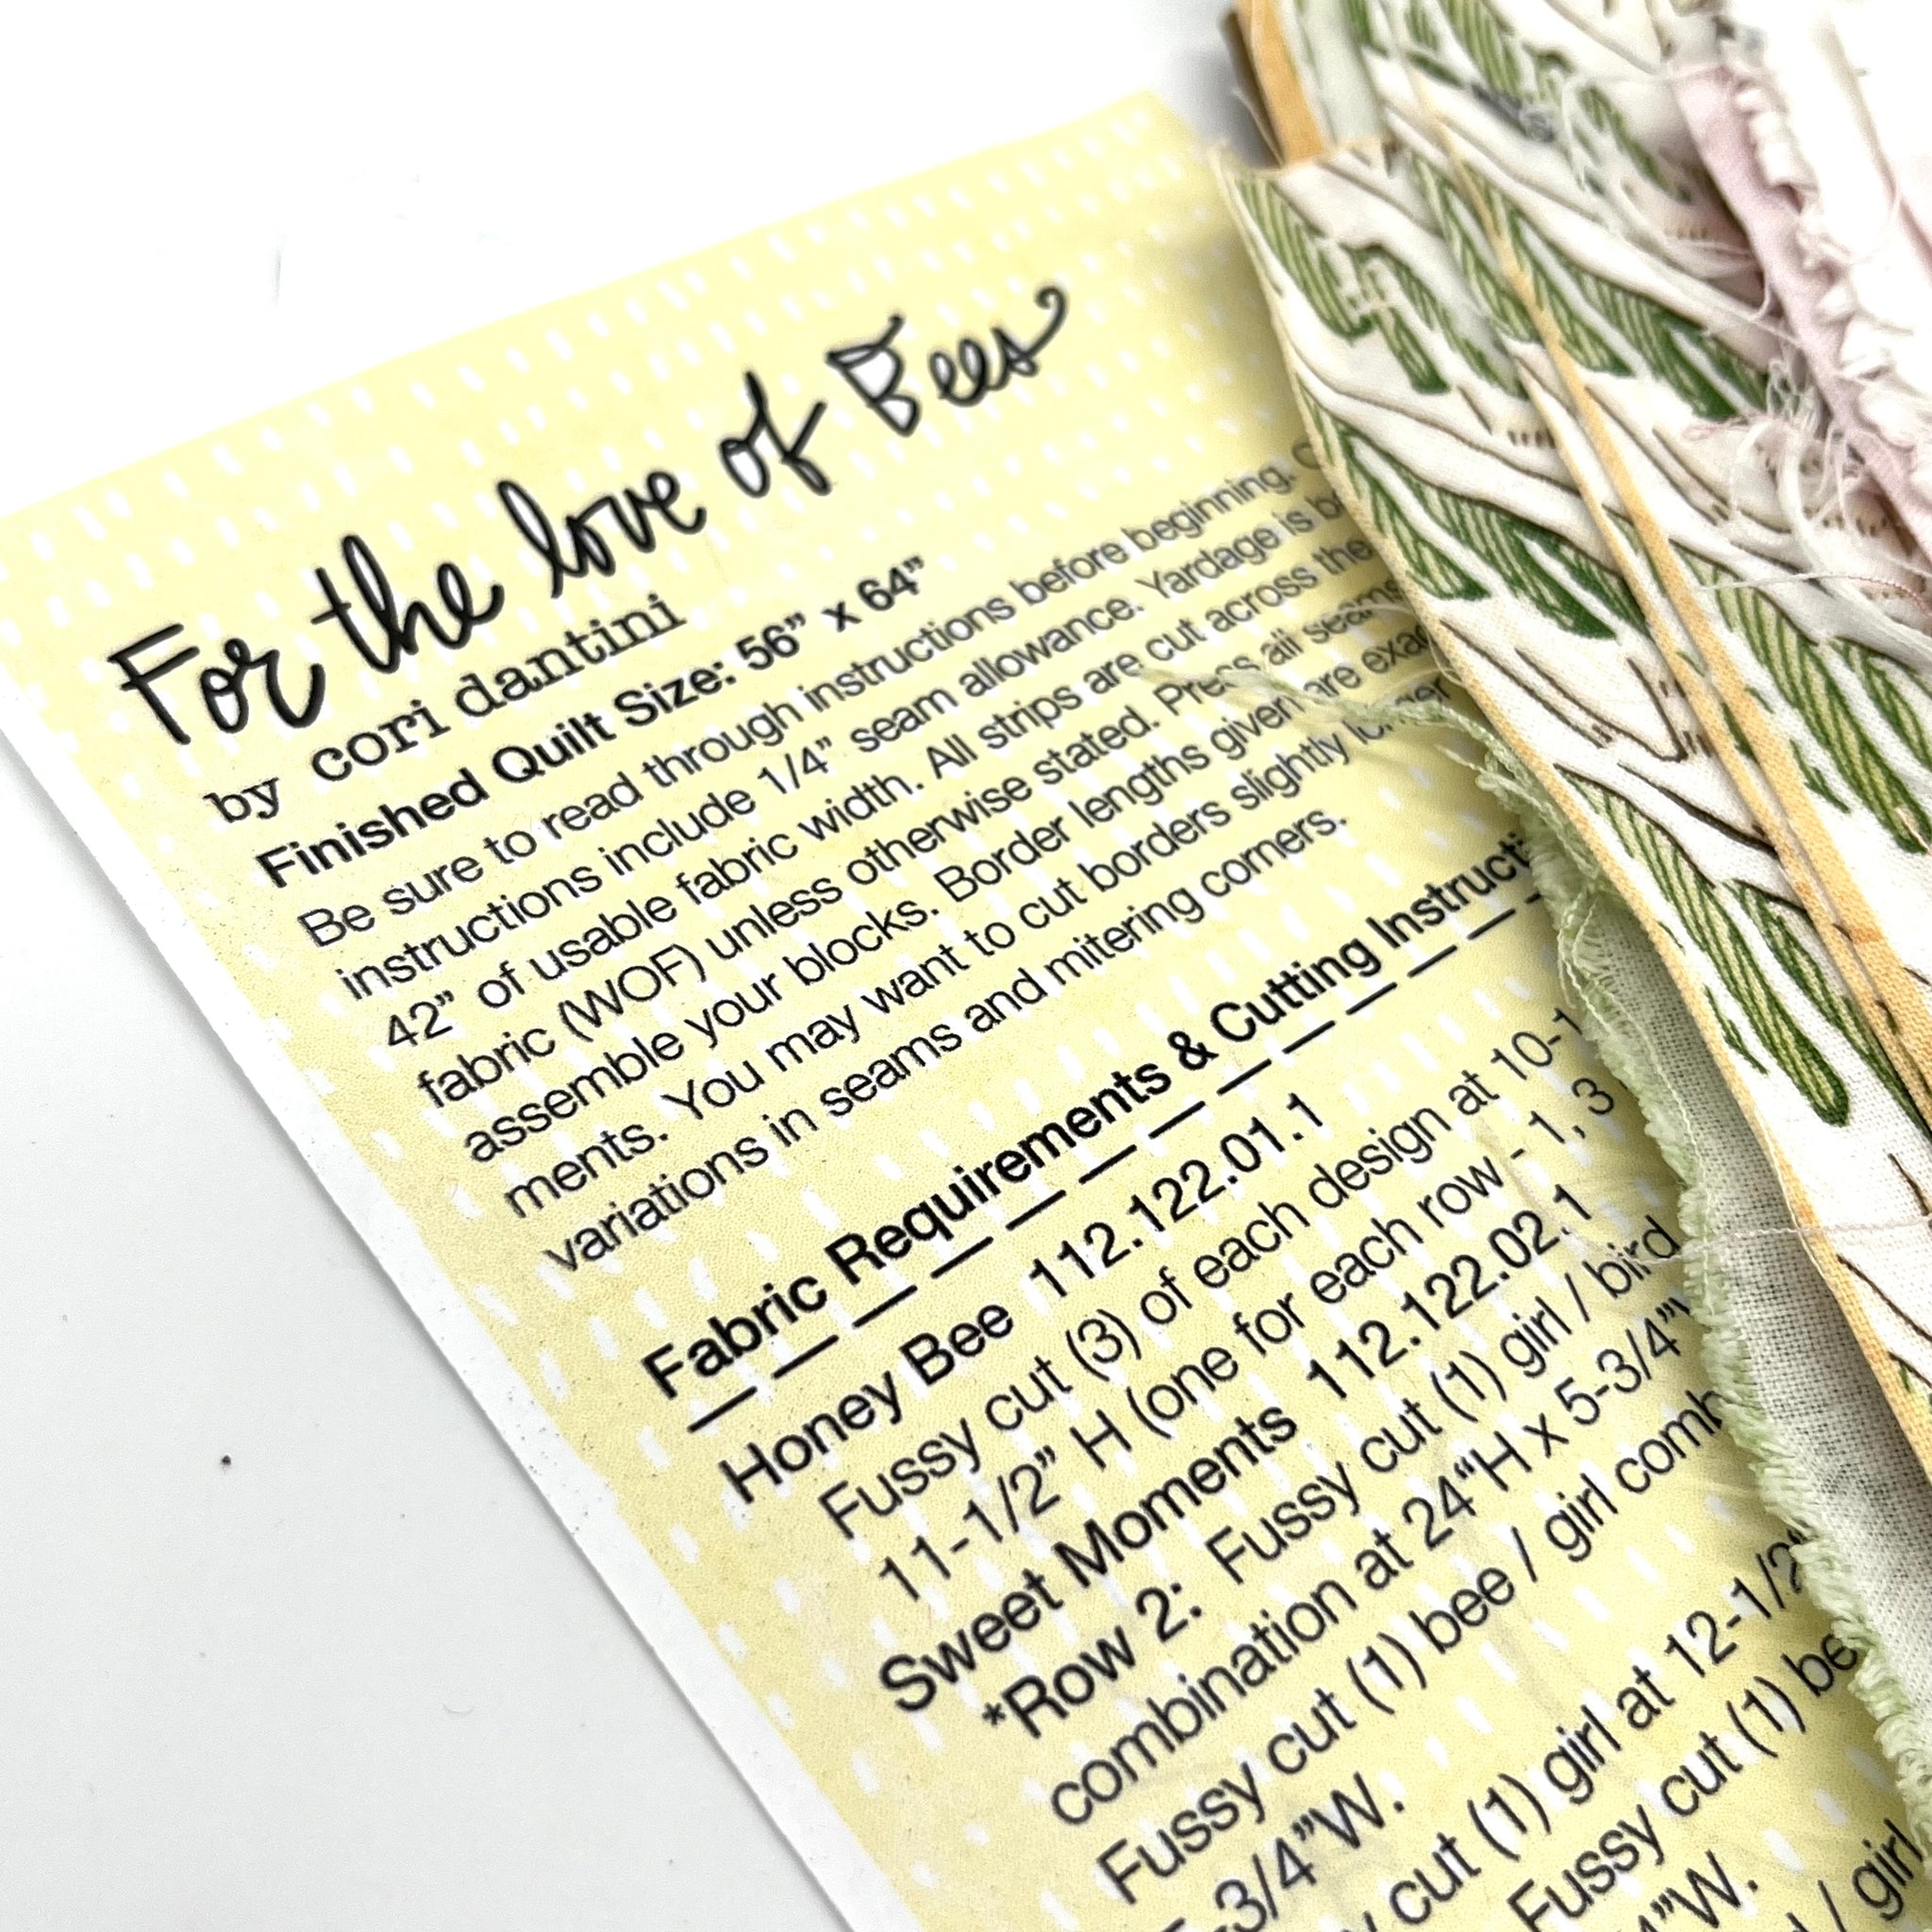 For the love of Bees
by cori dantini
Finished Quilt Size: 56” x 64”
Be sure to read through instructions before beginning.
instructions include 1/4” seam allowance. Yardage is
42” of usable fabric width. All strips are cut across the
fabric (WOF) unless otherwise stated. Press all seams
assemble your blocks. Border lengths given are
ments. You may want to cut borders slightly longer
variations in seams and mitering corners.
Fabric Requirements & Cutting
Honey Bee 112.122.01.1
Fussy cut (3) of each design at
11-1/2” H (one for each row - 1, 3
Sweet Moments 112.122.02.1
*Row 2: Fussy cut (1) girl / bird
combination at 24“H x 5-3/4”
Fussy cut (1) bee / girl
-3/4”W.
cut (1) girl at 12-1/2”
Fussy cut (1)
”W.
/ girl